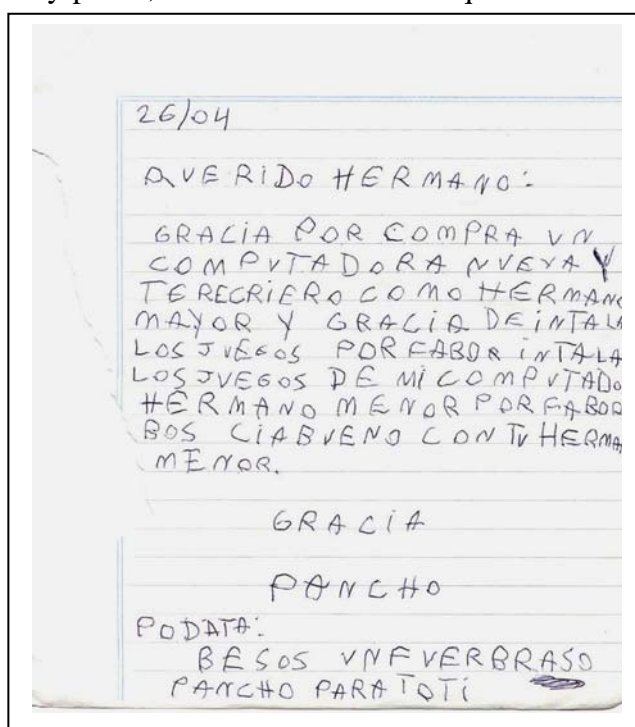 26/04
QVERIDO HERMANO:
GRACIA POR COMPRA VN
COMPVTADORA NVEVA Y
TE RECRIERO COMO HERMANO
MAYOR Y GRACIA DE iNTALA
LOS JVEGOS POR FABOR iNTALA
LOS JVEGOS DE Mi COMPVTADO
HERMANO MENOR POR FABOR
BOS CiABVENO CON TV HERMA
MENOR.
GRACiA
PANCHO
PODATA:
BESOS VNFVERBRASO
PANCHO PARA TOTi